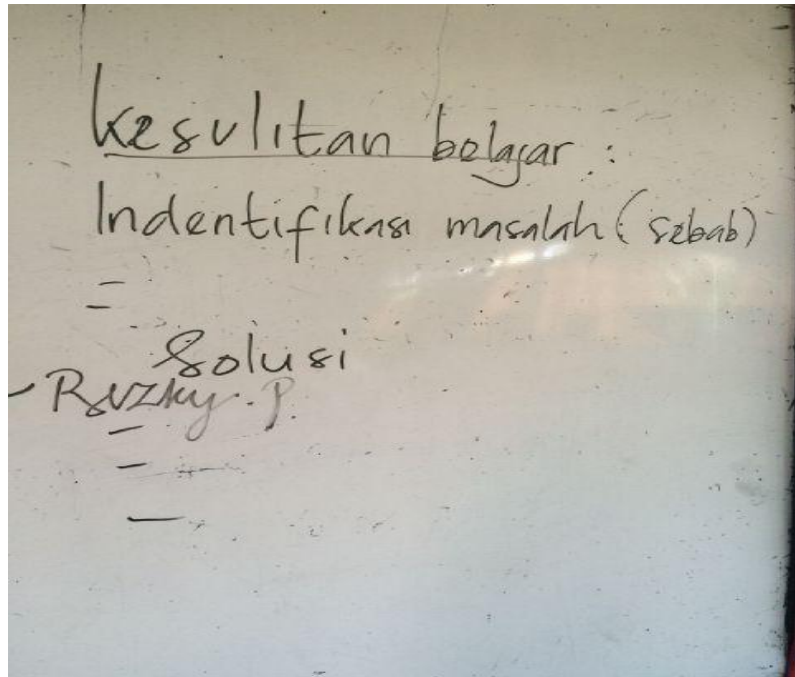 Kesulitan belajar :
Indentifikasi masalah (sebab)
=
Solusi
- Rizky. P.
-
-
-